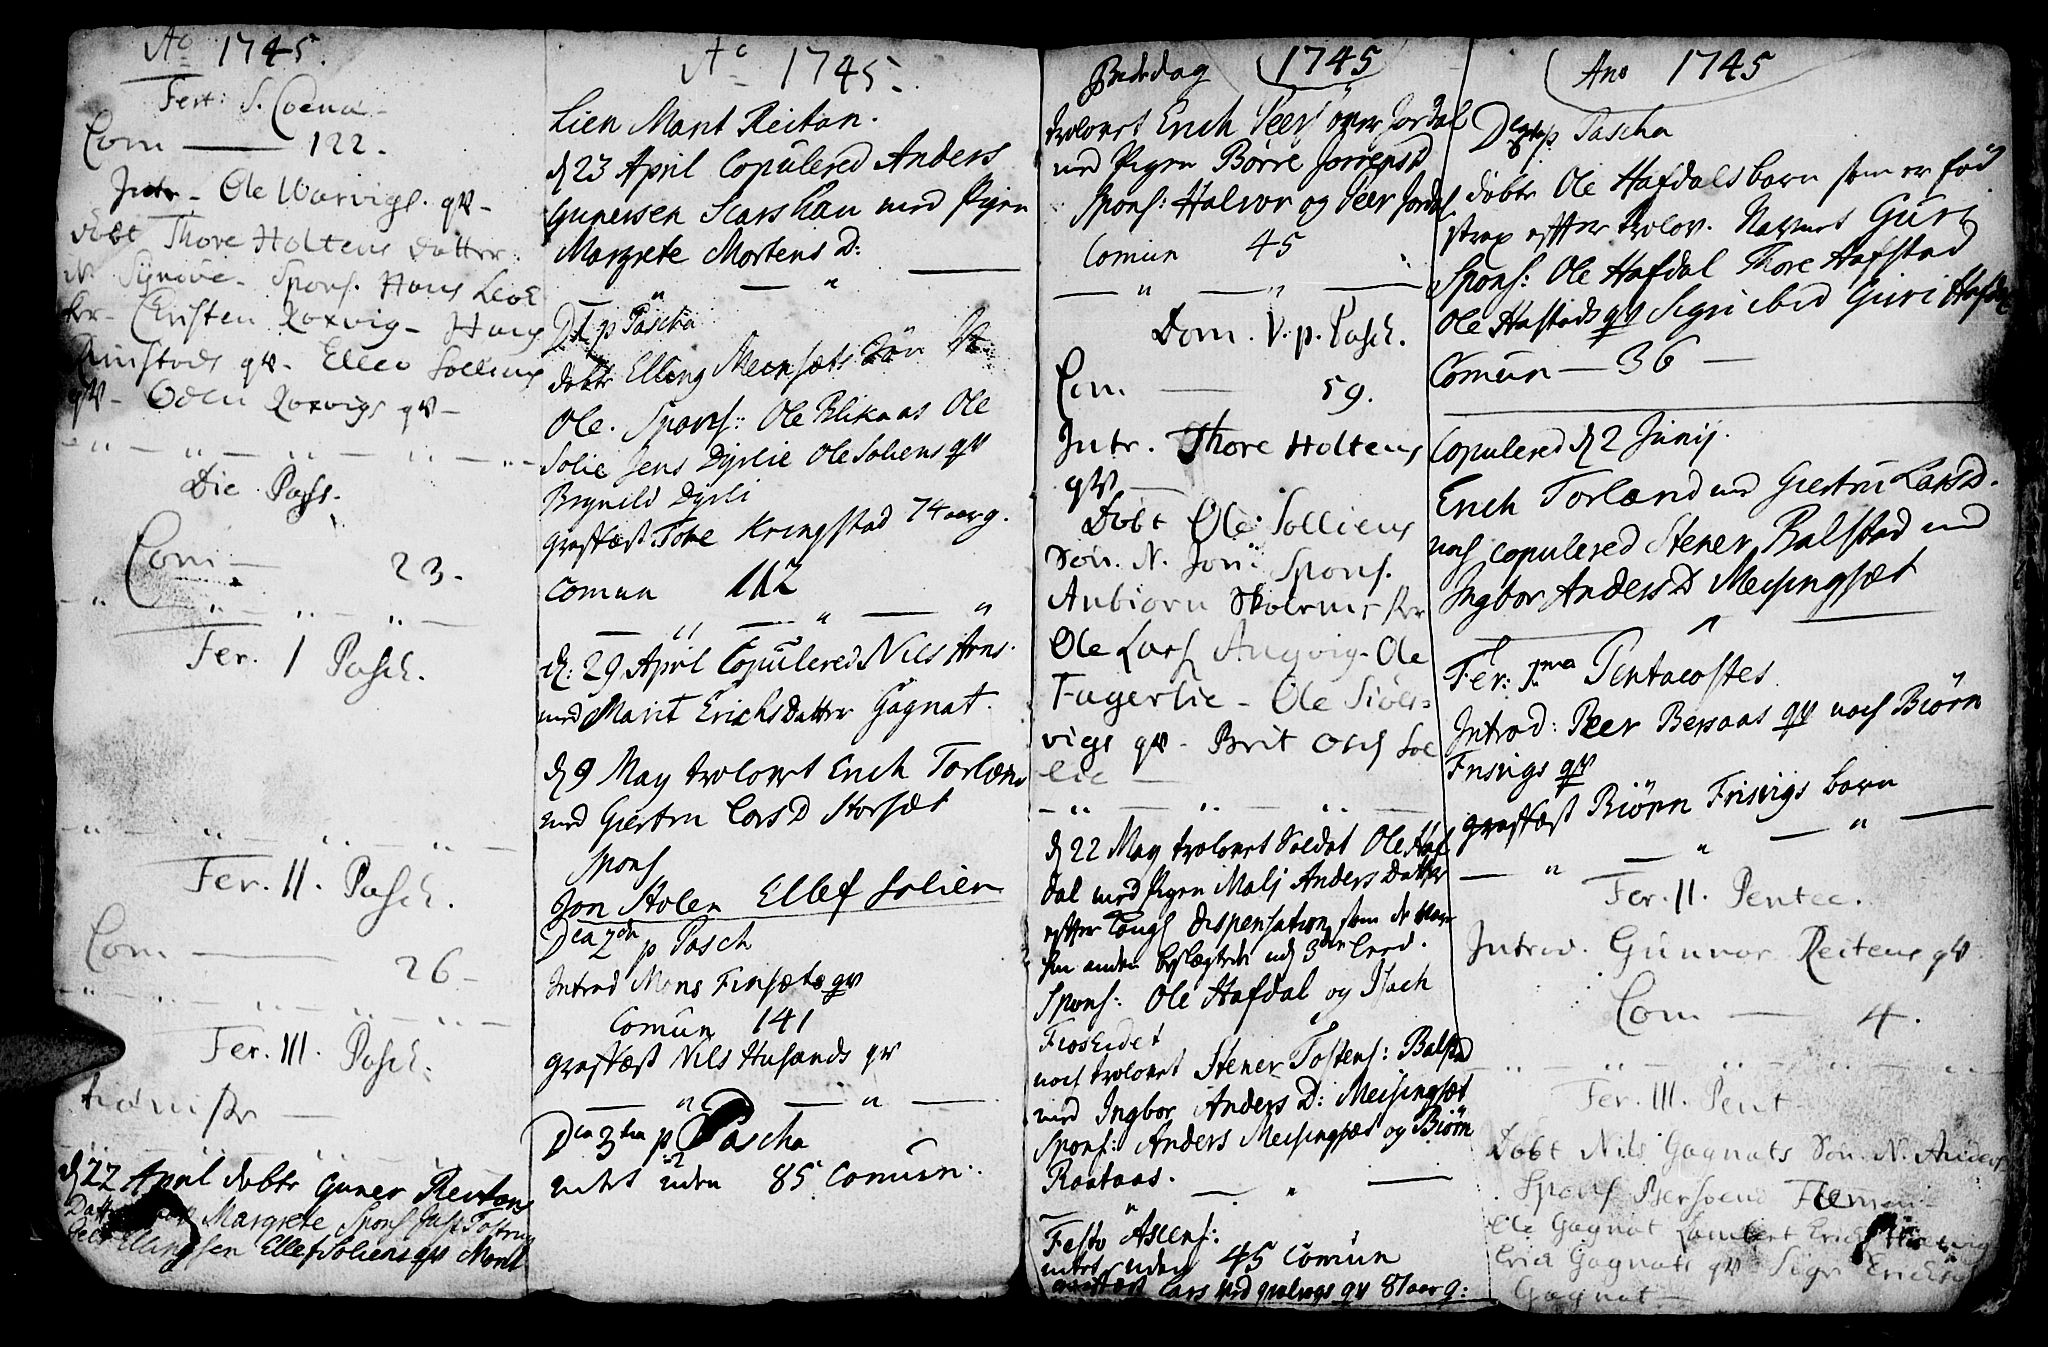 Ao 1745.
Fest: S. Coena
Com — 122.
Intr. Ole Warvigs. qv —
döbt Thore Holtens datter.
N. Synove — Spons. Hans Leoe
Kr — Christen Roxvig — Hans
qv. Ellev Solliens
qv — Oden Roxvigs qv —
Die Pass.
Com — 23.
Fer. I Pasch.
Fer. II. Pasch.
Com — 26 —
Fer. III. Pasch.
d 22 April döbte Guner Reitans
Datter Margrete Spons
Ellingsen Ellef Soliens qv Marit
Ao 1745.
Lien Marit Reitan.
d 23 April Copulered Anders
Gunersen Scarshau med Pigen
Margrete Mortens D:
D 1 p Pascha
döbte Elling Meensæts Sön
Ole. Spons: Ole Blikaas Ole
Solie Jens Dyrlie Ole Soliens qv
Brynild Dyrli
græstæst Tore Kringstad 74 aar g.
Comun 112
d: 29 April Copulered Nils Arns.
med Marit Erichs Datter Gagnat.
d 9 May trolovet Erich Torlæns
med Giertru Lars D Storsæt
Spons
Jon Stolen Ellef Solien
Dca 2da p Pasch
Introd Mons Finsæts qv
Comun 141
græstæst Nils Husands qv
Dca 3tia p Pascha
intet uden 85 Comun.
Bededag 1745
trolovet Erich Peers över Jordal
med Pigen Börre Jörrens D
Spons: Halvor og Peer Jordal
Comun 45
Dom. V. p. Pasch.
Com — 59.
Intr. Thore Holtens
qv —
Döbt Ole Solliens
Sön. N. Jon. Spons.
Anbiörn Skolem Kr
Ole Lars Angvig — Ole
Fagerlie — Ole Siöls-
vigs qv — Brit Ols Sol
lie —
d 22 May trolovet Soldat Ole Haf
dal med Pigen Mali Anders Datter
efter Kongl dispensation som de vare
hin anden beslægtede udj 3die leed.
Spons: Ole Hafdal og Isach
Fioskedet
noch trolovet Stener Tostens: Balstad
med Ingbor Anders D: Meisingset
Spons: Anders Meisingset og Biörn
Raataas.
Festo Ascens:
intet uden 45 Comun
græstæst Lars qv 81 aar g:
Ano 1745
D p Pascha
döbte Ole Hafdals barn som er föd
strax efter trolov. Navnet Guri
Spons: Ole Hafdal Thore Hafstad
Ole Hafstads qv Sigri ibid Guri Hafdal
Comun — 36 —
Copulered d 2 Junij.
Erich Torlænd med Giertru Lars D.
noch copulered Stener Balstad med
Ingbor Anders D Meisingset
Fer: 1ma Pentacostes
Introd: Peer Bersaas qv noch Biörn
Frisvigs qv
græstæst Biörn Frisvigs barn
Fer. II. Pentec.
Introd. Gunnor Reitens qv.
Com — 4.
Fer. III. Pent
Döbt Nils Gagnats Sön. N. Anders
Spons
Ole Gagnat Lambert Erich
Erich Gagnats qv Sigri Erichs
Gagnat —